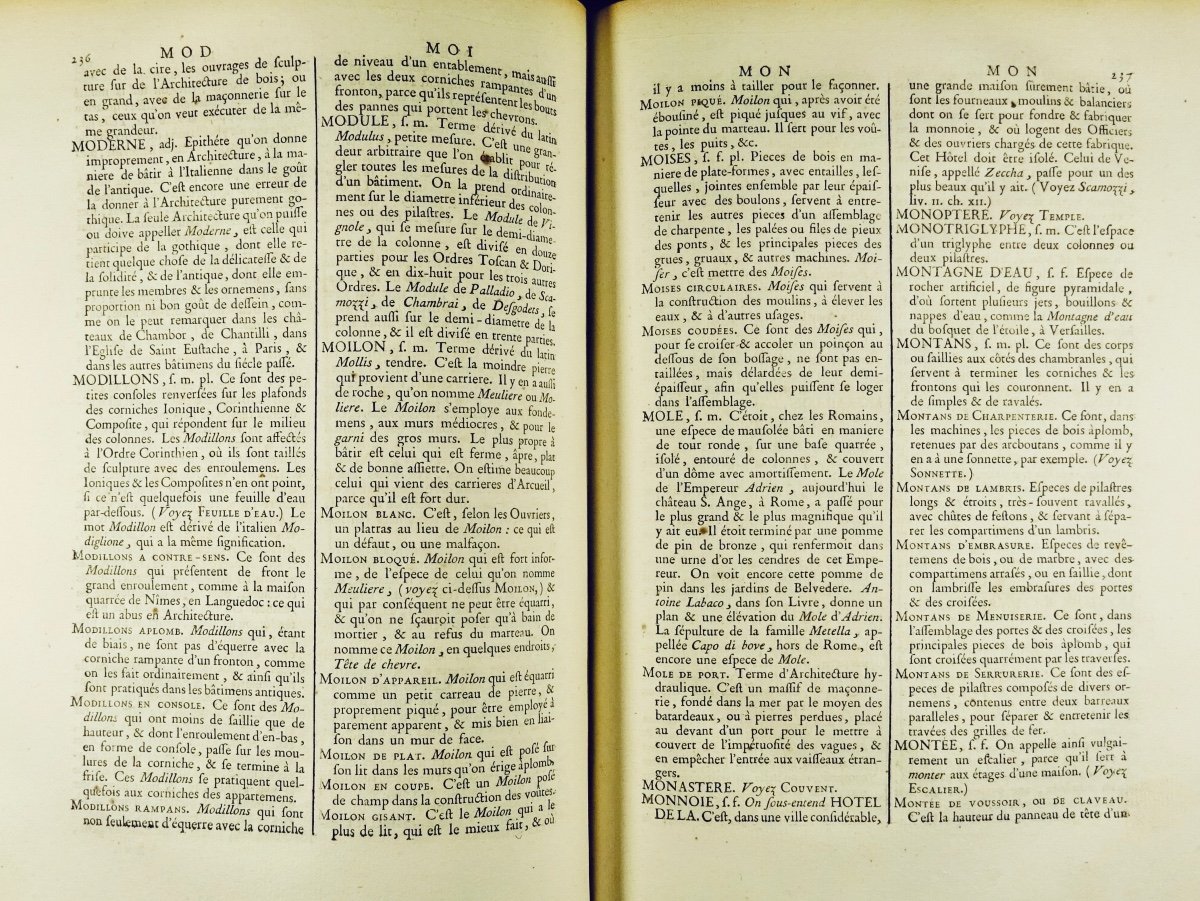 236
MOD
avec de la cire, les ouvrages de sculp-
ture sur de l'Architecture de bois; ou
en grand, avec de la maçonnerie sur le
tas, ceux qu'on veut exécuter de la mê-
me grandeur.
MODERNE, adj. Epithéte qu'on donne
improprement, en Architecture, à la ma-
niere de bâtir à l'Italienne dans le goût
de l'antique. C'est encore une erreur de
la donner à l'Architecture purement go-
thique. La seule Architecture qu'on puisse
ou doive appeller Moderne, est celle qui
participe de la gothique, dont elle re-
tient quelque chose de la délicatesse & de
la solidité, & de l'antique, dont elle em-
prunte les membres & les ornemens, sans
proportion ni bon goût de dessein, com-
me on le peut remarquer dans les châ-
teaux de Chambor, de Chantilli, dans
l'Eglise de Saint Eustache, à Paris, &
dans les autres bâtimens du siécle passé.
MODILLONS, s. m. pl. Ce sont des pe-
tites consoles renversées sur les plafonds
des corniches Ionique, Corinthienne &
Composite, qui répondent sur le milieu
des colonnes. Les Modillons sont affectés
à l'Ordre Corinthien, où ils sont taillés
de sculpture avec des enroulemens. Les
Ioniques & les Composites n'en ont point,
si ce n'est quelquefois une feuille d'eau
par-dessous. (Voyez FEUILLE D'EAU.) Le
mot Modillon est dérivé de l'italien Mo-
diglione, qui a la même signification.
MODILLONS A CONTRE-SENS. Ce sont des
Modillons qui présentent de front le
grand enroulement, comme à la maison
quarrée de Nîmes, en Languedoc: ce qui
est un abus en Architecture.
MODILLONS APLOMB. Modillons qui, étant
de biais, ne sont pas d'équerre avec la
corniche rampante d'un fronton, comme
on les fait ordinairement, & ainsi qu'ils
sont pratiqués dans les bâtimens antiques.
MODILLONS EN CONSOLE. Ce sont des Mo-
dillons qui ont moins de saillie que de
hauteur, & dont l'enroulement d'en-bas,
en forme de console, passe sur les mou-
lures de la corniche, & se termine à la
frise. Ces Modillons se pratiquent quel-
quefois aux corniches des appartemens.
MODILLONS RAMPANS. Modillons qui sont
non seulement d'équerre avec la corniche
MOI
de niveau d'un entablement, mais aussi
avec les deux corniches rampantes d'un
fronton, parce qu'ils représentent les bouts
des pannes qui portent les chevrons.
MODULE, s. m. Terme dérivé du latin
Modulus, petite mesure. C'est une gran-
deur arbitraire que l'on établit pour ré-
gler toutes les mesures de la distribution
d'un bâtiment. On la prend ordinaire-
ment sur le diametre inférieur des colon-
nes ou des pilastres. Le Module de Vi-
gnole, qui se mesure sur le demi-diame-
tre de la colonne, est divisé en douze
parties pour les Ordres Toscan & Dori-
que, & en dix-huit pour les trois autres
Ordres. Le Module de Palladio, de Sca-
mozzi, de Chambrai, de Desgodets, se
prend aussi sur le demi-diametre de la
colonne, & il est divisé en trente parties.
MOILON, s. m. Terme dérivé du latin
Mollis, tendre. C'est la moindre pierre
qui provient d'une carriere. Il y en a aussi
de roche, qu'on nomme Meuliere ou Mo-
liere. Le Moilon s'employe aux fonde-
mens, aux murs médiocres, & pour le
garni des gros murs. Le plus propre à
bâtir est celui qui est ferme, âpre, plat
& de bonne assiette. On estime beaucoup
celui qui vient des carrieres d'Arcueil,
parce qu'il est fort dur.
MOILON BLANC. C'est, selon les Ouvriers,
un platras au lieu de Moilon: ce qui est
un défaut, ou une malfaçon.
MOILON BLOQUÉ. Moilon qui est fort infor-
me, de l'espece de celui qu'on nomme
Meuliere, (voyez ci-dessus MOILON,) &
qui par conséquent ne peut être équarri,
& qu'on ne sçauroit poser qu'à bain de
mortier, & au refus du marteau. On
nomme ce Moilon, en quelques endroits,
Tête de chevre.
MOILON D'APPAREIL. Moilon qui est équarri
comme un petit carreau de pierre, &
proprement piqué, pour être employé à
parement apparent, & mis bien en liai-
son dans un mur de face.
MOILON DE PLAT. Moilon qui est posé sur
son lit dans les murs qu'on érige aplomb.
MOILON EN COUPE. C'est un Moilon posé
de champ dans la construction des voutes.
MOILON GISANT. C'est le Moilon qui a le
plus de lit, qui est le mieux fait, & où
MON
il y a moins à tailler pour le façonner.
MOILON PIQUÉ. Moilon qui, après avoir été
ébousiné, est piqué jusques au vif, avec
la pointe du marteau. Il sert pour les voû-
tes, les puits, &c.
MOISES, s. f. pl. Pieces de bois en ma-
niere de plate-formes, avec entailles, les-
quelles, jointes ensemble par leur épais-
seur avec des boulons, servent à entre-
tenir les autres pieces d'un assemblage
de charpente, les palées ou files de pieux
des ponts, & les principales pieces des
grues, gruaux, & autres machines. Moi-
ser, c'est mettre des Moises.
MOISES CIRCULAIRES. Moises qui servent à
la construction des moulins, à élever les
eaux, & à d'autres usages.
MOISES COUDÉES. Ce sont des Moises qui,
pour se croiser & accoler un poinçon au
dessous de son bossage, ne sont pas en-
taillées, mais délardées de leur demi-
épaisseur, afin qu'elles puissent se loger
dans l'assemblage.
MOLE, s. m. C'étoit, chez les Romains,
une espece de mausolée bâti en maniere
de tour ronde, sur une base quarrée,
isolé, entouré de colonnes, & couvert
d'un dôme avec amortissement. Le Mole
de l'Empereur Adrien, aujourd'hui le
château S. Ange, à Rome, a passé pour
le plus grand & le plus magnifique qu'il
y ait eu. Il étoit terminé par une pomme
de pin de bronze, qui renfermoit dans
une urne d'or les cendres de cet Empe-
reur. On voit encore cette pomme de
pin dans les jardins de Belvedere. An-
toine Labaco, dans son Livre, donne un
plan & une élévation du Mole d'Adrien.
La sépulture de la famille Metella, ap-
pellée Capo di bove, hors de Rome, est
encore une espece de Mole.
MOLE DE PORT. Terme d'Architecture hy-
draulique. C'est un massif de maçonne-
rie, fondé dans la mer par le moyen des
batardeaux, ou à pierres perdues, placé
au devant d'un port pour le mettre à
couvert de l'impétuosité des vagues, &
en empêcher l'entrée aux vaisseaux étran-
gers.
MONASTERE. Voyez COUVENT.
MONNOIE, s. f. On sous-entend HOTEL
DE LA. C'est, dans une ville considérable,
MON
237
une grande maison sûrement bâtie, où
sont les fourneaux, moulins & balanciers
dont on se sert pour fondre & fabriquer
la monnoie, & où logent des Officiers
& des ouvriers chargés de cette fabrique.
Cet Hôtel doit être isolé. Celui de Ve-
nise, appellé Zeccha, passe pour un des
plus beaux qu'il y ait. (Voyez Scamozzi,
liv. II. ch. XII.)
MONOPTERE. Voyez TEMPLE.
MONOTRIGLYPHE, s. m. C'est l'espace
d'un triglyphe entre deux colonnes ou
deux pilastres.
MONTAGNE D'EAU, s. f. Espece de
rocher artificiel, de figure pyramidale,
d'où sortent plusieurs jets, bouillons &
nappes d'eau, comme la Montagne d'eau
du bosquet de l'étoile, à Versailles.
MONTANS, s. m. pl. Ce sont des corps
ou saillies aux côtés des chambranles, qui
servent à terminer les corniches & les
frontons qui les couronnent. Il y en a
de simples & de ravalés.
MONTANS DE CHARPENTERIE. Ce sont, dans
les machines, les pieces de bois àplomb,
retenues par des arcboutans, comme il y
en a à une sonnette, par exemple. (Voyez
SONNETTE.)
MONTANS DE LAMBRIS. Especes de pilastres
longs & étroits, très-souvent ravallés,
avec chûtes de festons, & servant à sépa-
rer les compartimens d'un lambris.
MONTANS D'EMBRASURE. Especes de revê-
temens de bois, ou de marbre, avec des
compartimens arrasés, ou en saillie, dont
on lambrisse les embrasures des portes
& des croisées.
MONTANS DE MENUISERIE. Ce sont, dans
l'assemblage des portes & des croisées, les
principales pieces de bois àplomb, qui
sont croisées quarrément par les traverses.
MONTANS DE SERRURERIE. Ce sont des es-
peces de pilastres composés de divers or-
nemens, contenus entre deux barreaux
paralleles, pour séparer & entretenir les
travées des grilles de fer.
MONTÉE, s. f. On appelle ainsi vulgai-
rement un escalier, parce qu'il sert à
monter aux étages d'une maison. (Voyez
ESCALIER.)
MONTÉE DE VOUSSOIR, OU DE CLAVEAU.
C'est la hauteur du panneau de tête d'un